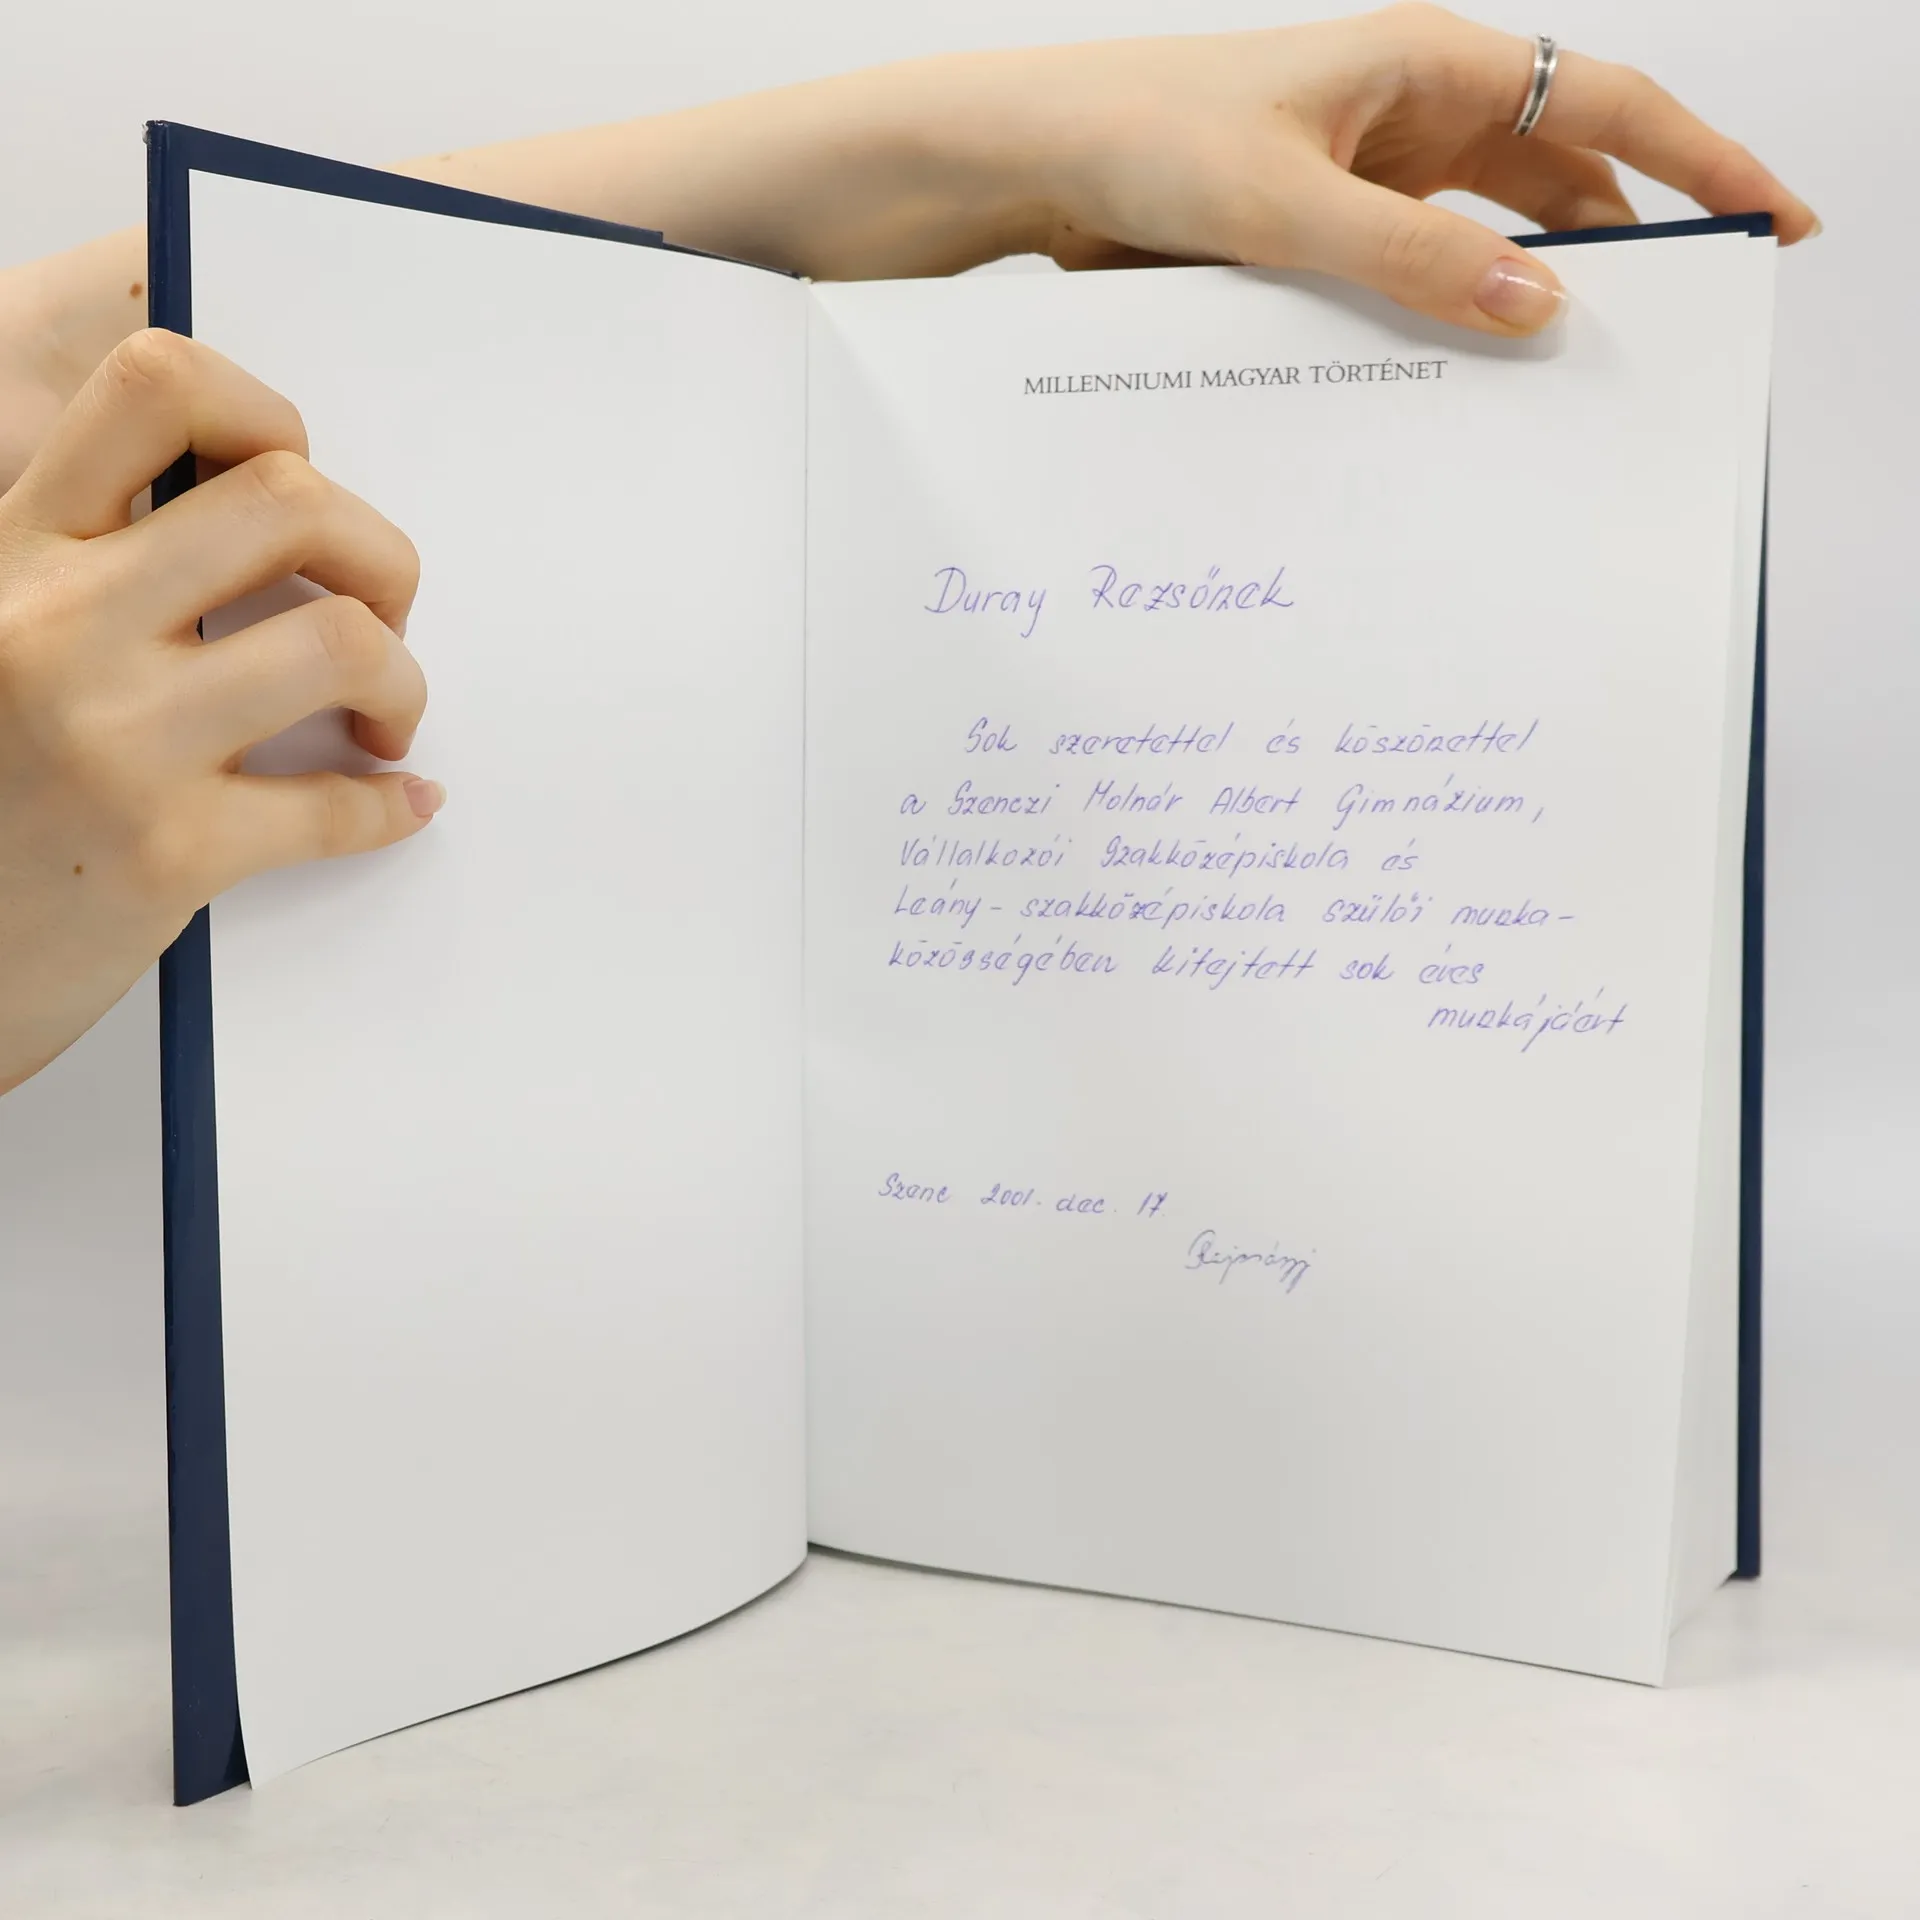 MILLENNIUMI MAGYAR TÖRTÉNET
Duray Rezsőnek
Sok szeretettel és köszönettel
a Szenczi Molnár Albert Gimnázium,
Vállalkozói Szakközépiskola és
Leány-szakközépiskola szülői munka-
közösségében kifejtett sok éves
munkájáért
Szenc 2001. dec. 17.